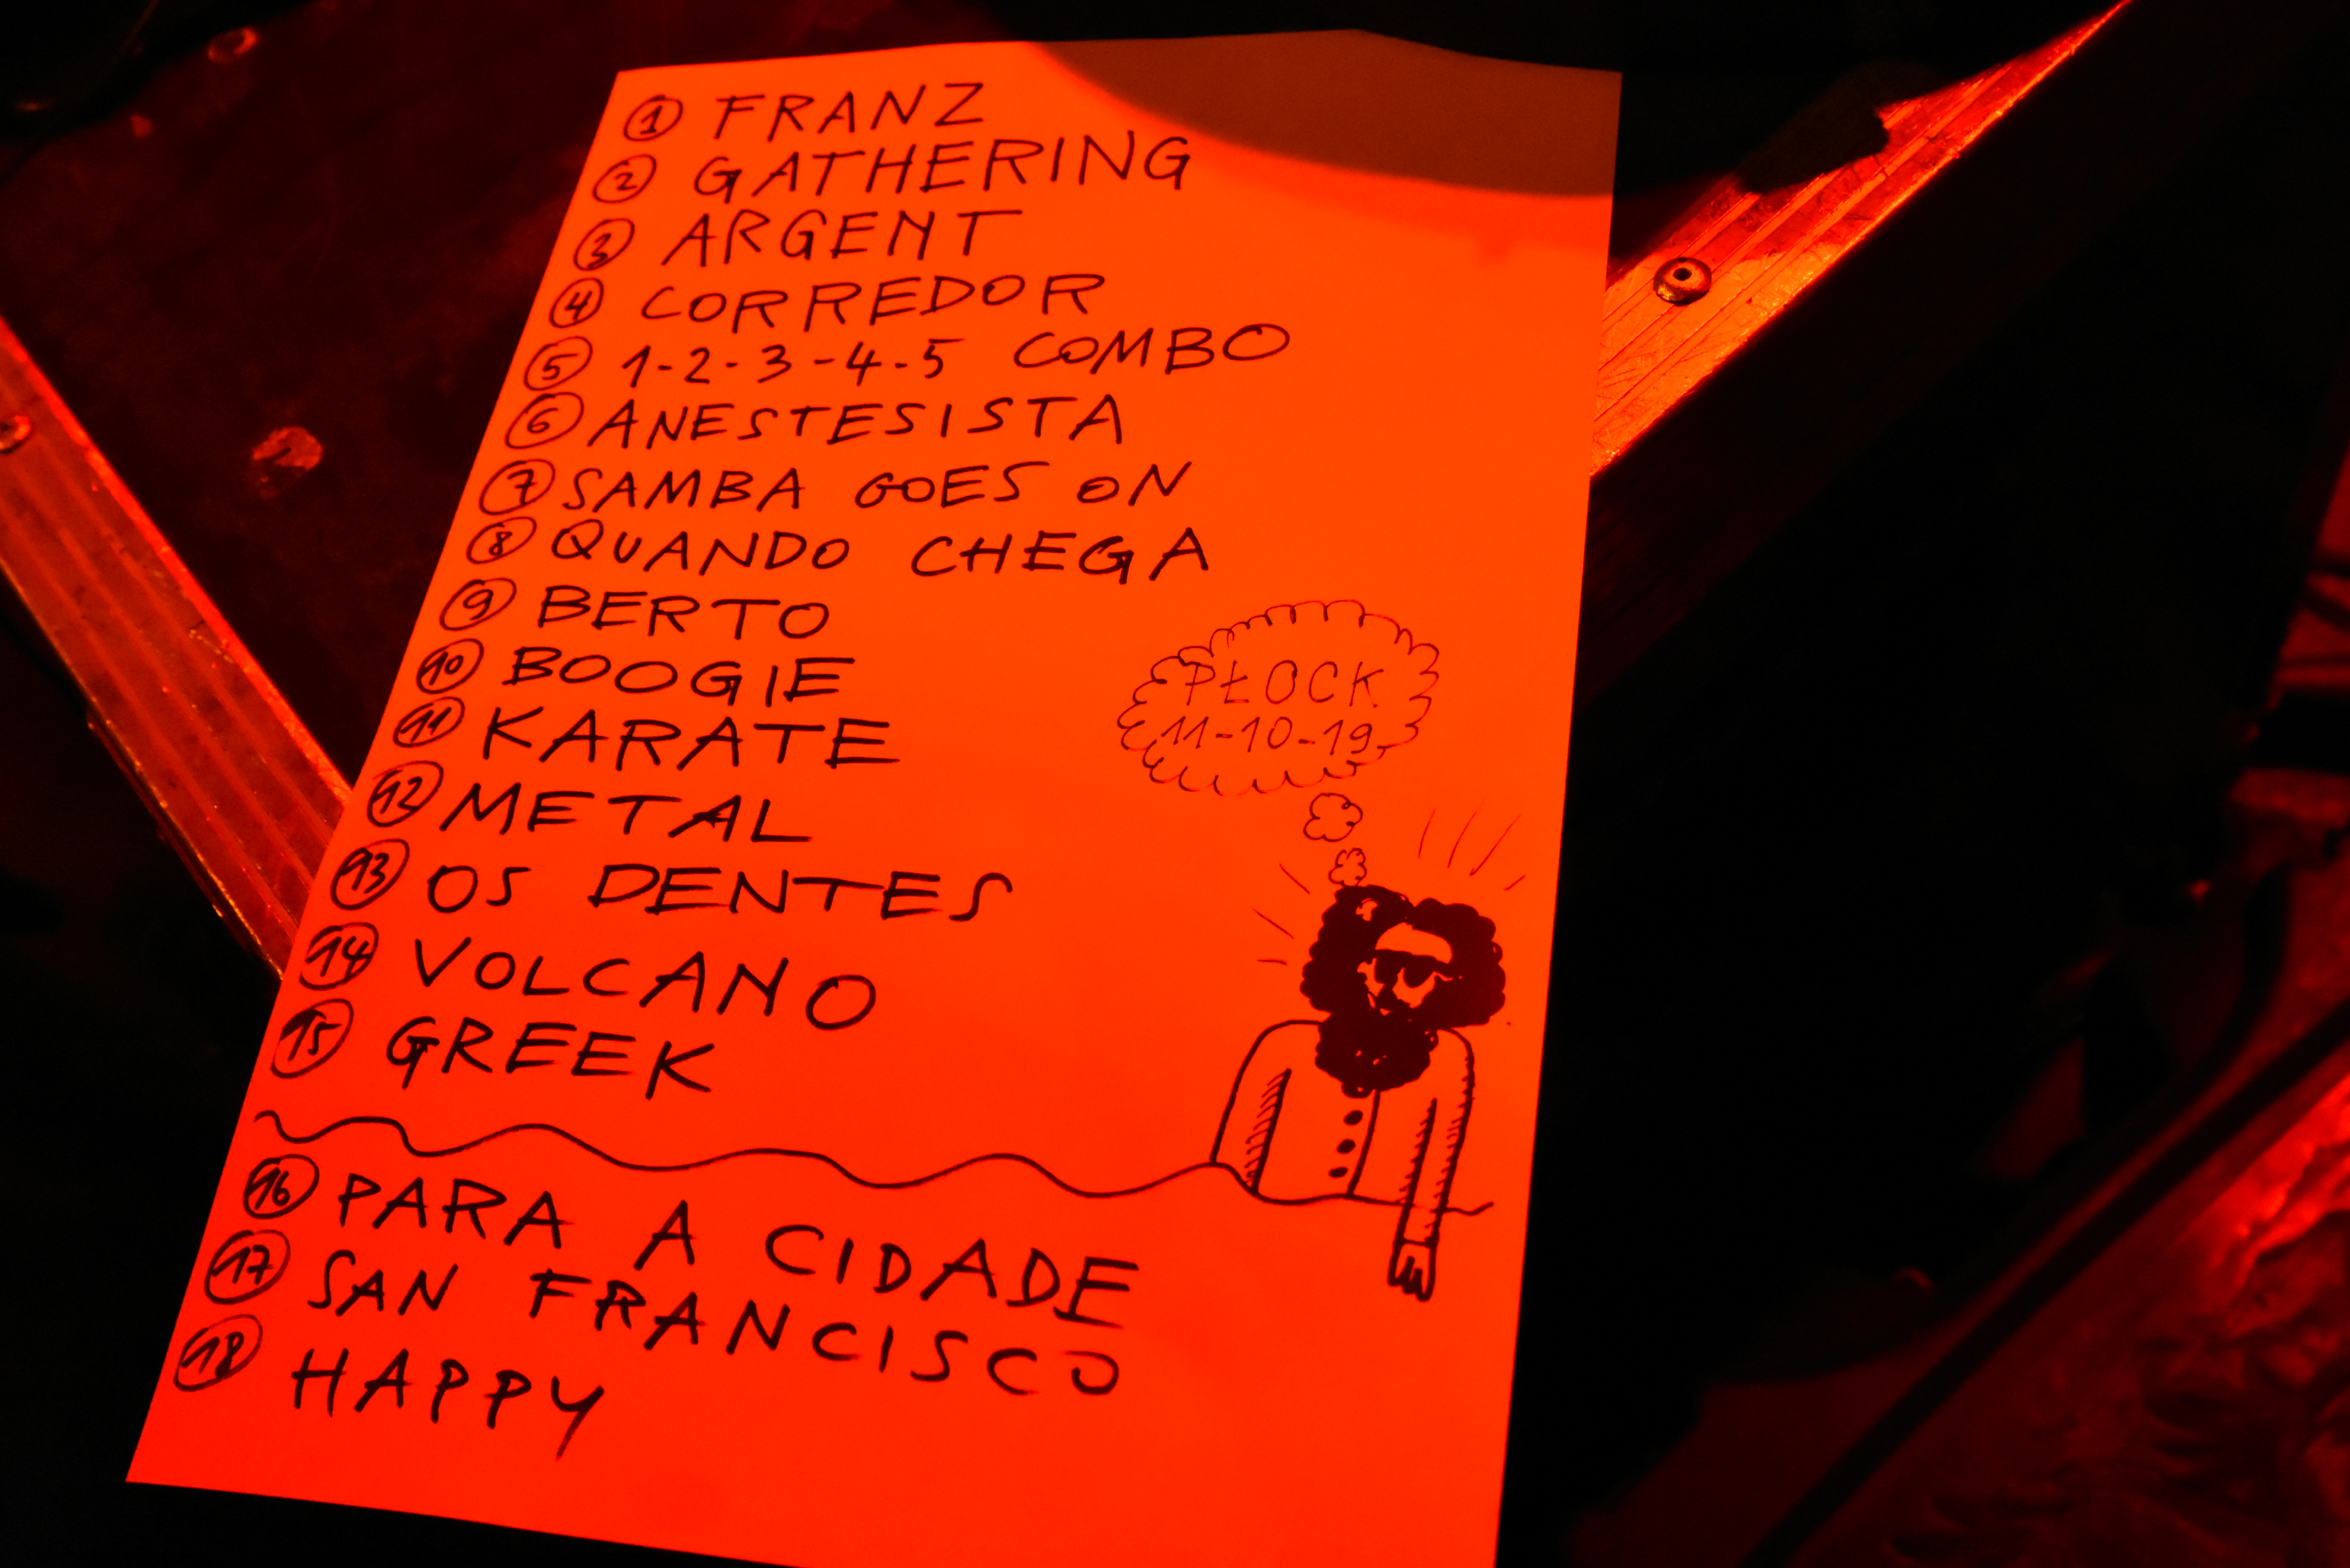 1 FRANZ
2 GATHERING
3 ARGENT
4 CORREDOR
5 1-2-3-4-5 COMBO
6 ANESTESISTA
7 SAMBA GOES ON
8 QUANDO CHEGA
9 BERTO
10 BOOGIE
11 KARATE
12 METAL
13 OS DENTES
14 VOLCANO
15 GREEK
16 PARA A CIDADE
17 SAN FRANCISCO
18 HAPPY
PŁOCK
11-10-19